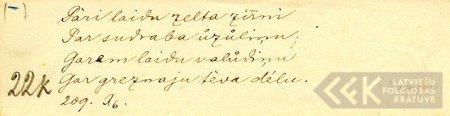 (-)
Pāri laidu zelta zīrni
Par sudraba ūzūliņu;
Garem laidu valūdiņu
Gar greznaju tēva dēlu.
22k
209. Xb.
LATVIEŠU
FOLKLORAS
KRĀTUVE